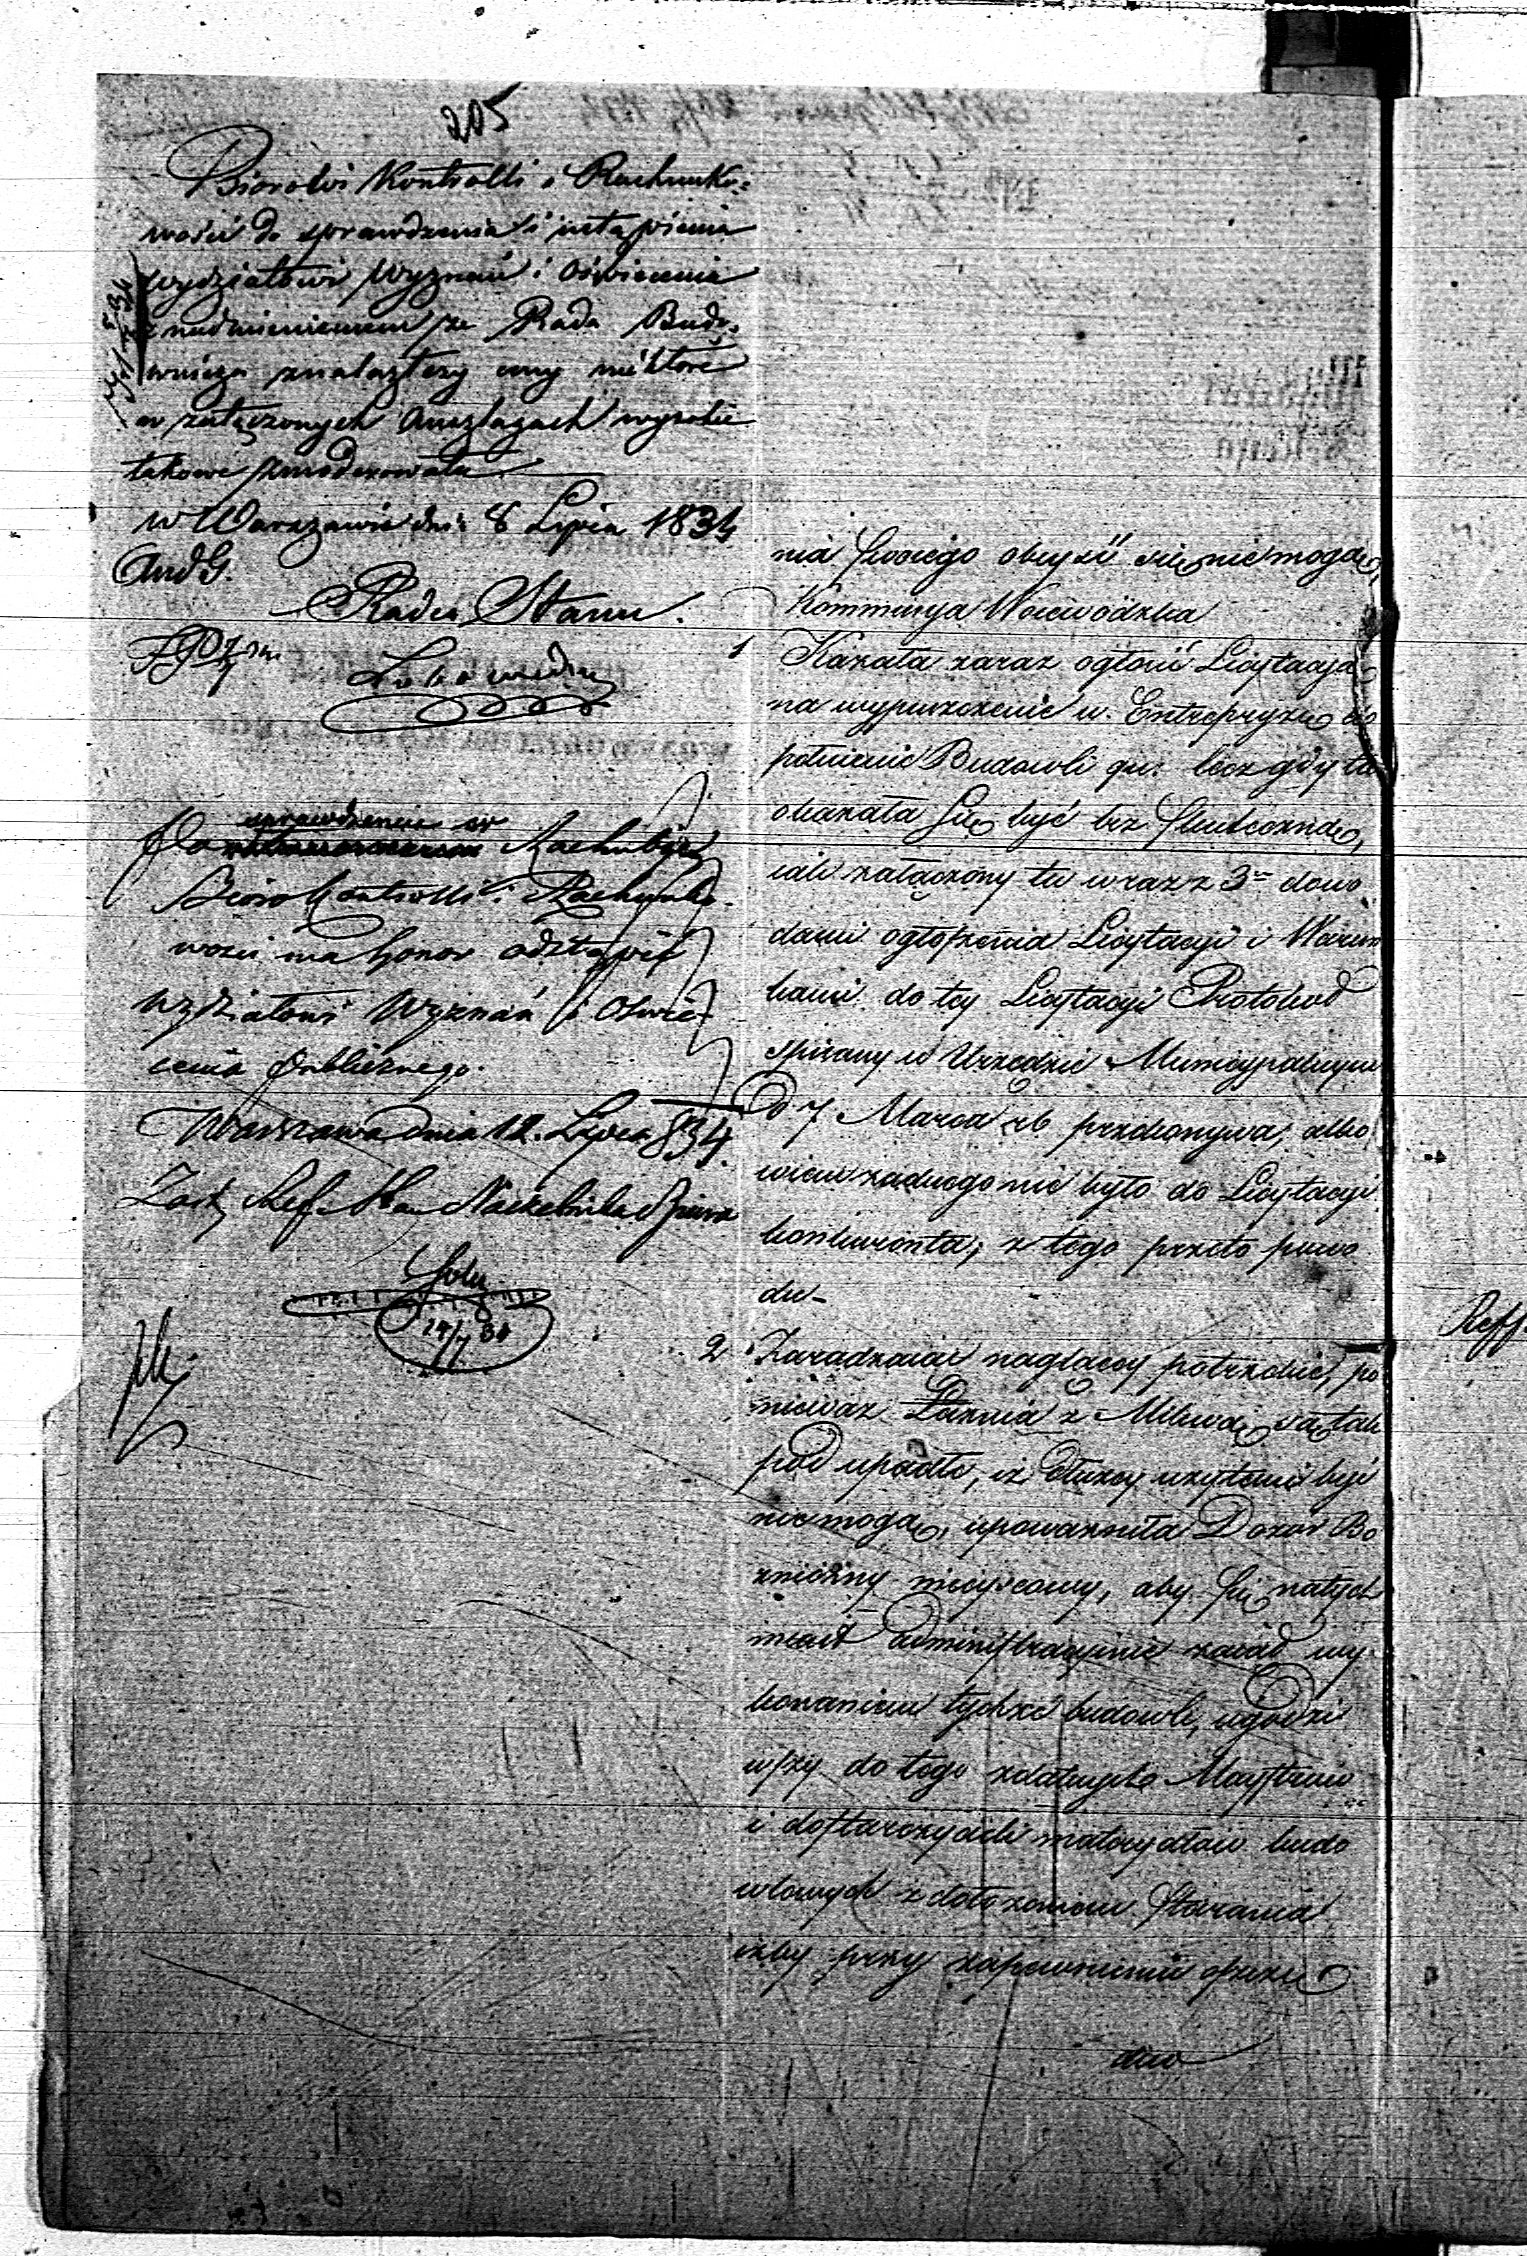 205
Biorowi Kontrolli i Rachunko=
wości do sprawdzenia i ustąpienia
wydziałowi Wyznań i Oświecenia
z nadmienieniem że Rada Budo=
wnicza znalazłszy ceny niektore
w załączonych Anszlagach wysokie
takowe zmoderowała
w Warszawie dnia 8 Lipca 1834
Radca Stanu.
sprawdzenie w
Po Rachubie
Bióro Kontrolli i Rachunko-
wości ma honor odstąpić
Wydziałowi Wyznań i Oświe-
cenia Publicznego.
Warszawa dnia 12. Lipca 834.
Zast. Ref. Stan. Naczelnika Biura
14/7 34
nia swoiego obeyść się nie mogą,
Kommissya Woiewódzka
1 Kazała zaraz ogłosić Licytacyą
na wypuszczenie w Entrepryzę do
pełnienie Budowli qu: lecz gdy ta
okazała się być bez skuteczną,
iak załączony tu wraz z 3ma dowo
dami ogłoszenia Licytacyi i Warun
kami do tey Licytacyi Protokół
spisany w Urzędzie Municypalnym
D 7 Marca rb przekonywa, albo
wiem żadnego nie było do Licytacyi
konkurenta; z tego przeto powo
du-
2 Zaradzaiąc nagłącey potrzebie, po
nieważ Łaznia z Mykwą są tak
pod upadłe, iż dłużey użytemi być
nie mogą, upoważniła Dozór Bo
zniczny mieyscowy, aby się natych
miast administracyinie zaiął wy
konaniem tychże budowli, ugodzi
wszy do tego zdatnych Maystrów
i dostarczycieli materyałów budo
wlowych z dołożeniem starania
iżby przy zapewnieniu oszczę
dno
Reff.